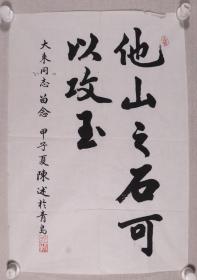 他山之石可
以攻玉
大来同志留念
甲子夏陈述于青岛